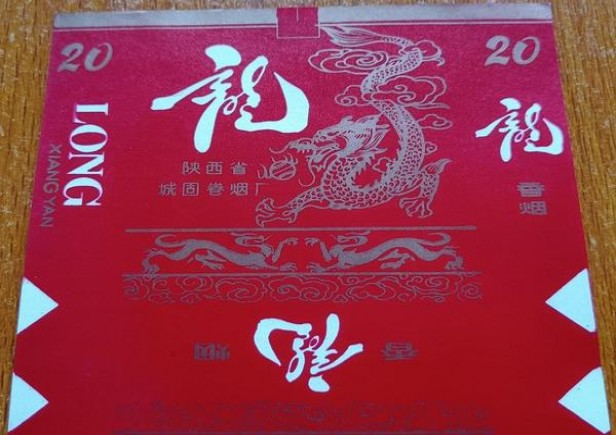 20
龍
陕西省
城固卷烟厂
LONG
XIANG YAN
20
龍
香烟
龍
香 烟